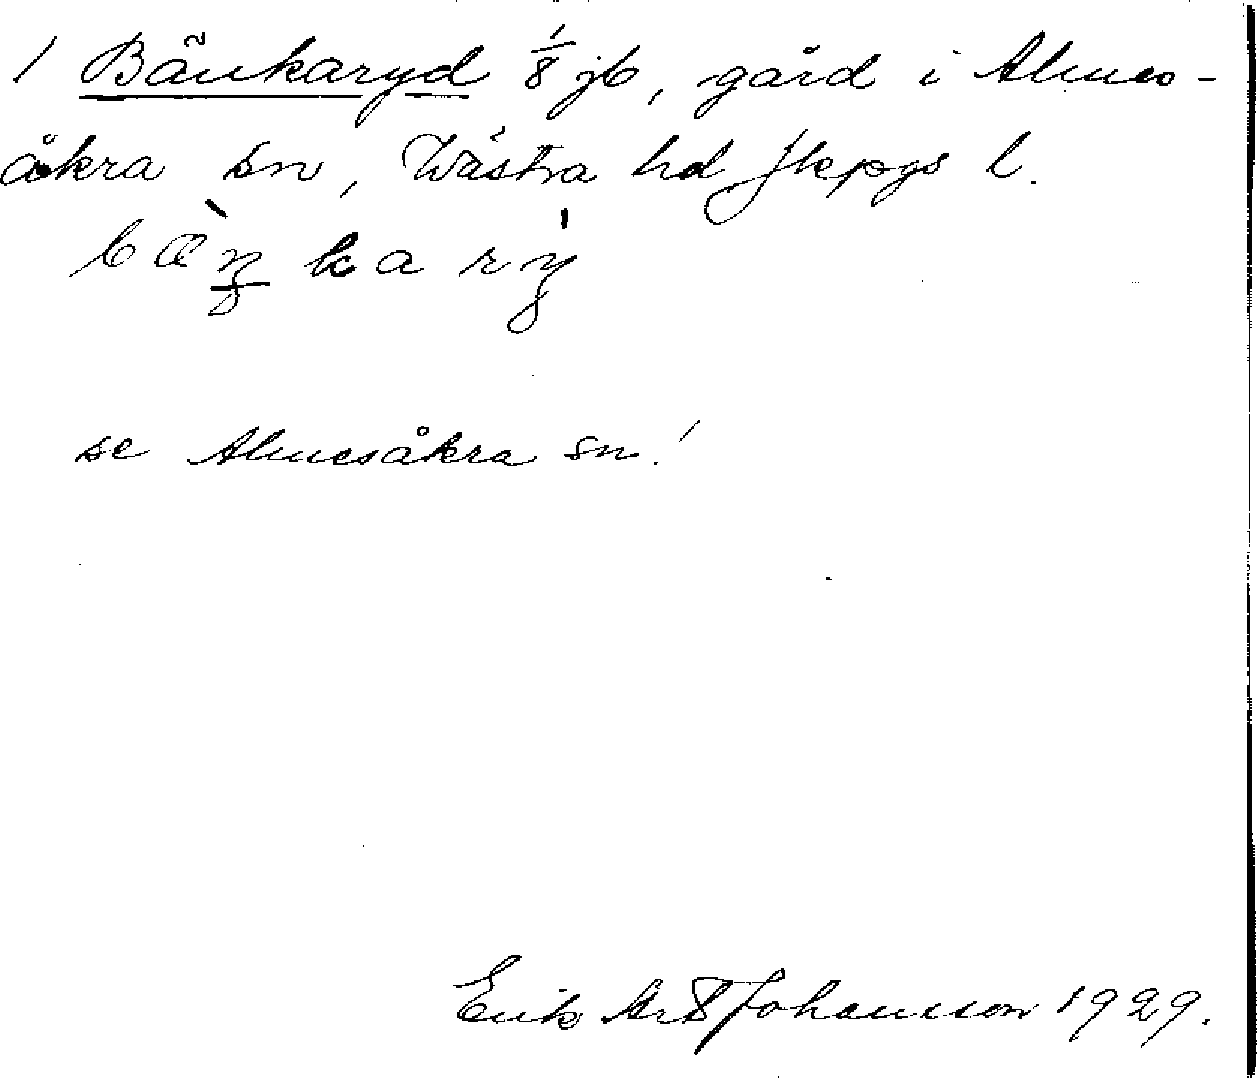 / Bänkaryd 1/8 jb, gård i Almes-
åkra sn, Västra hd Jkpgs l.
bæ̀ŋkarẏ
se Almesåkra sn!
Erik Johansson 1929.